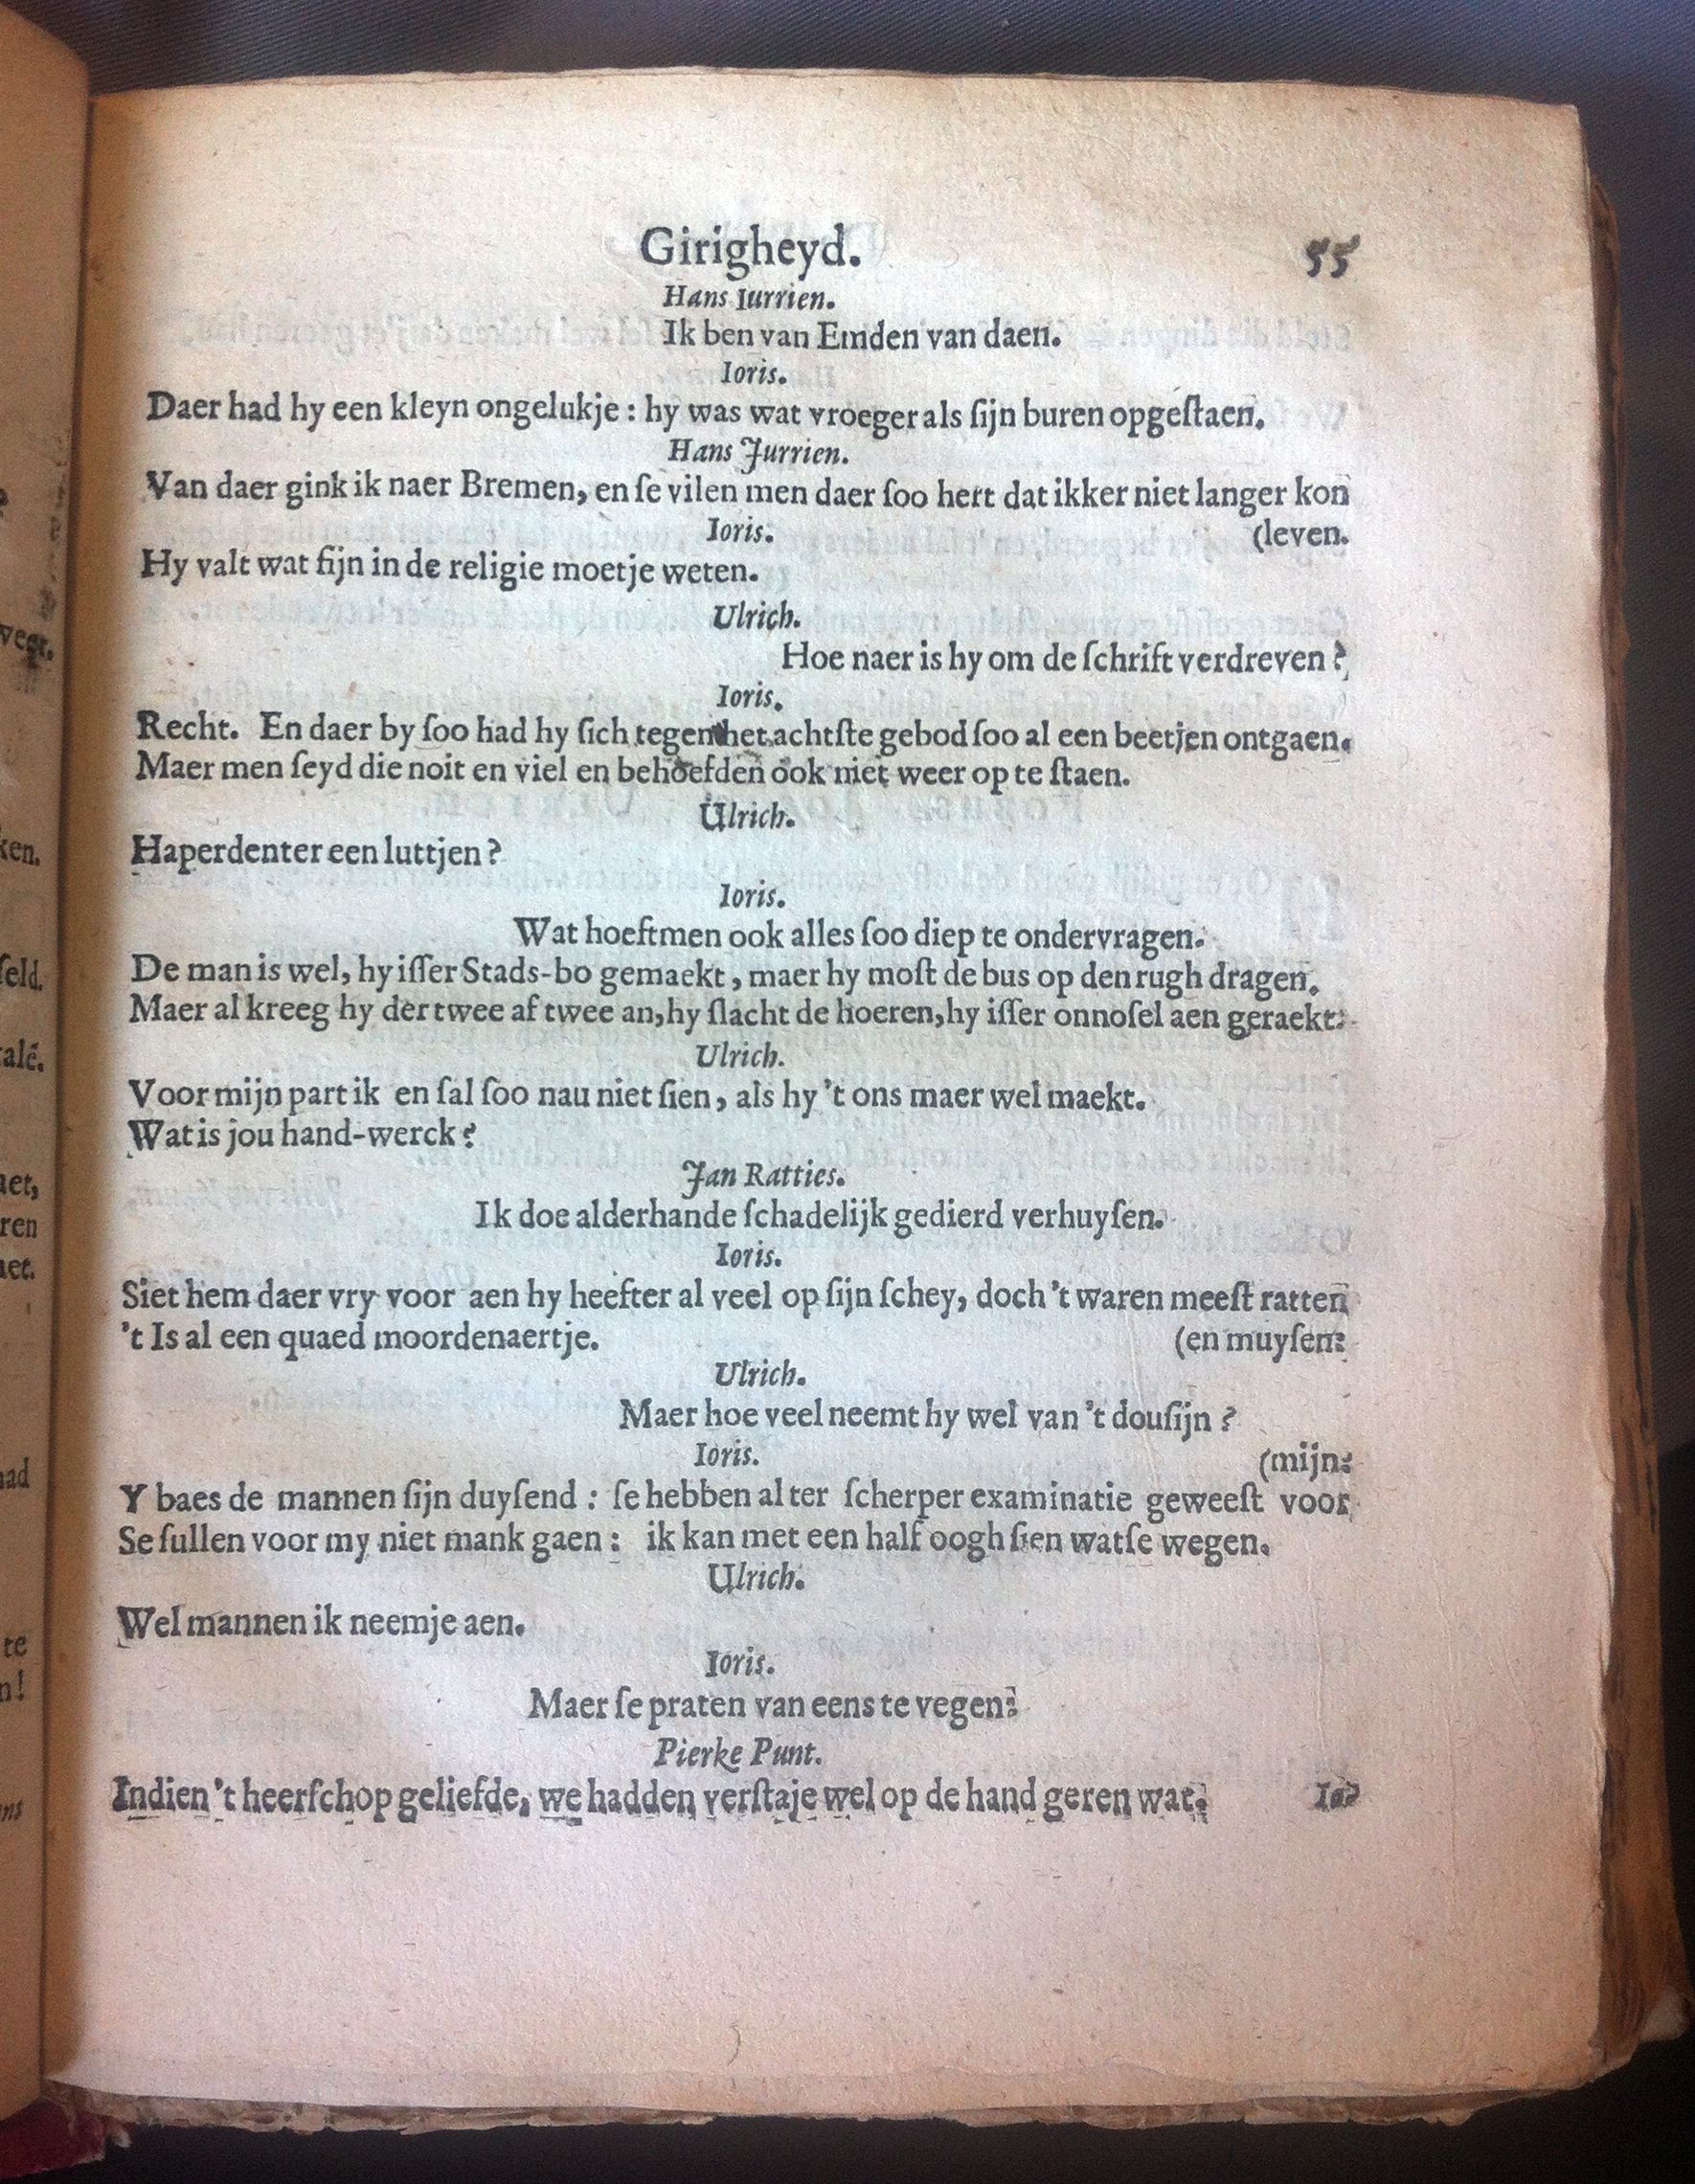 Girigheyd. 55
Hans Iurrien.
Ik ben van Emden van daen.
Ioris.
Daer had hy een kleyn ongelukje : hy was wat vroeger als ſijn buren opgeſtaen.
Hans Jurrien.
Van daer gink ik naer Bremen, en ſe vilen men daer ſoo hert dat ikker niet langer kon
Ioris. (leven.
Hy valt wat fijn in de religie moetje weten.
Ulrich.
Hoe naer is hy om de ſchrift verdreven?
Ioris.
Recht. En daer by ſoo had hy ſich tegen het achtſte gebod ſoo al een beetjen ontgaen.
Maer men ſeyd die noit en viel en behoefden ook niet weer op te ſtaen.
Ulrich.
Haperdenter een luttjen?
Ioris.
Wat hoeftmen ook alles ſoo diep te ondervragen.
De man is wel, hy iſſer Stads-bo gemaekt, maer hy moſt de bus op den rugh dragen.
Maer al kreeg hy der twee af twee an, hy ſlacht de hoeren, hy iſſer onnoſel aen geraekt.
Ulrich.
Voor mijn part ik en ſal ſoo nau niet ſien, als hy 't ons maer wel maekt.
Wat is jou hand-werck?
Jan Ratties.
Ik doe alderhande ſchadelijk gedierd verhuyſen.
Ioris.
Siet hem daer vry voor aen hy heefter al veel op ſijn ſchey, doch 't waren meeſt ratten
't Is al een quaed moordenaertje. (en muyſen:
Ulrich.
Maer hoe veel neemt hy wel van 't douſijn?
Ioris. (mijn:
Y baes de mannen ſijn duyſend : ſe hebben al ter ſcherper examinatie geweeſt voor
Se ſullen voor my niet mank gaen : ik kan met een half oogh ſien watſe wegen.
Ulrich.
Wel mannen ik neemje aen.
Ioris.
Maer ſe praten van eens te vegen:
Pierke Punt.
Indien 't heerſchop geliefde, we hadden verſtaje wel op de hand geren wat.